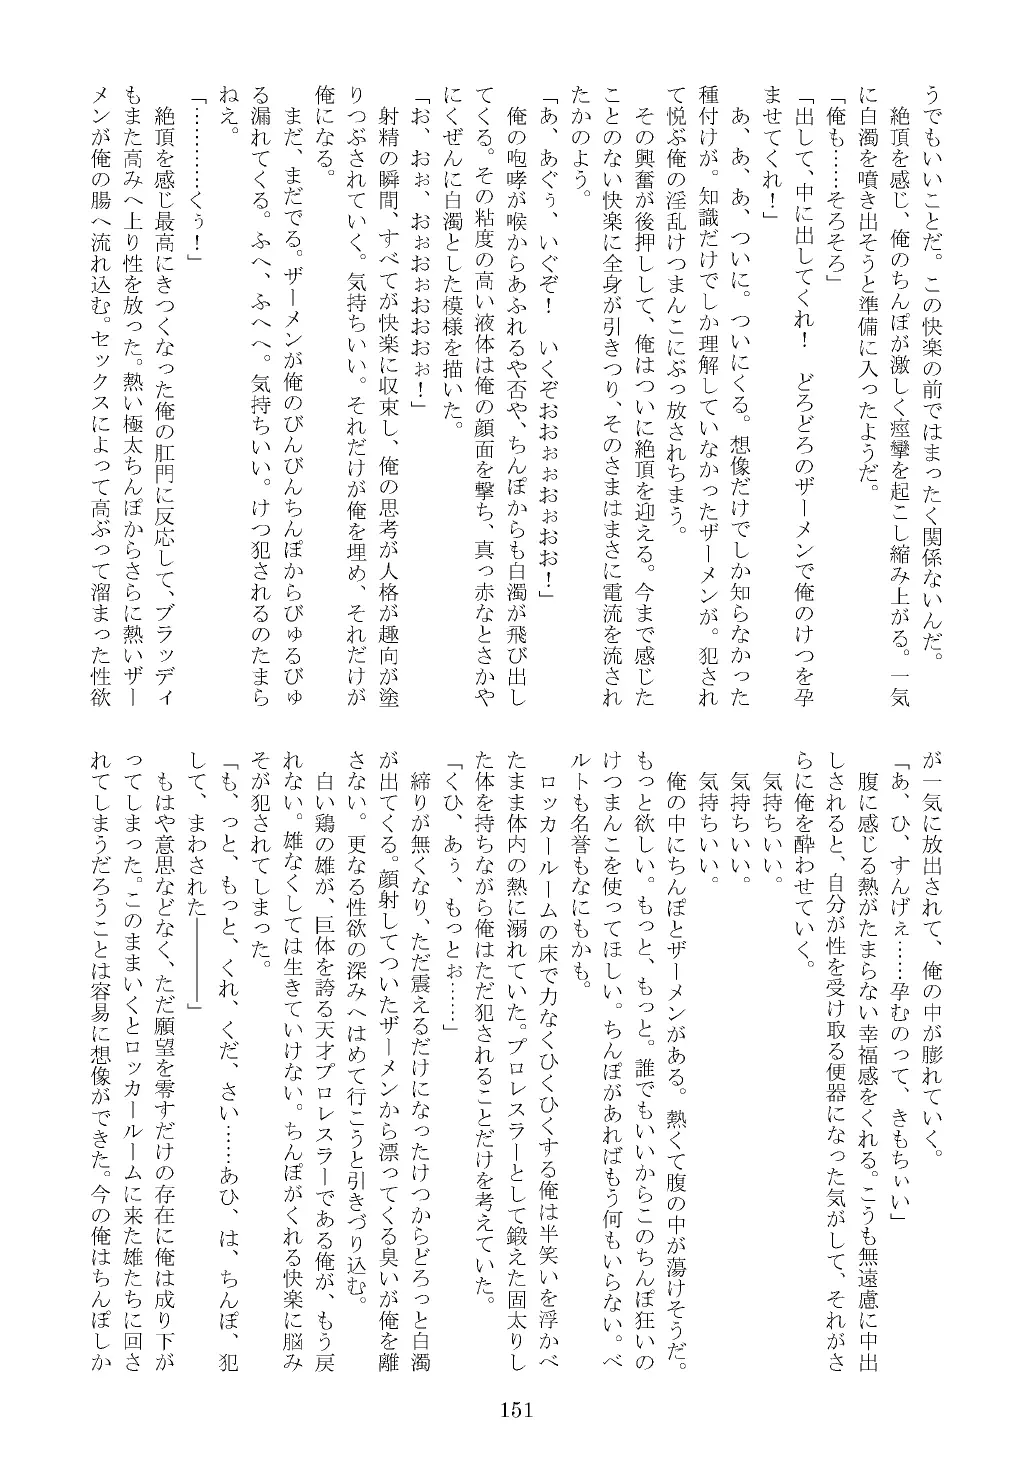 うでもいいことだ。この快楽の前ではまったく関係ないんだ。
絶頂を感じ、俺のちんぽが激しく痙攣を起こし縮み上がる。一気
に白濁を噴き出そうと準備に入ったようだ。
「俺も……そろそろ」
「出して、中に出してくれ！　どろどろのザーメンで俺のけつを孕
ませてくれ！」
あ、あ、あ、ついに。ついにくる。想像だけでしか知らなかった
種付けが。知識だけでしか理解していなかったザーメンが。犯され
て悦ぶ俺の淫乱けつまんこにぶっ放されちまう。
その興奮が後押しして、俺はついに絶頂を迎える。今まで感じた
ことのない快楽に全身が引きつり、そのさまはまさに電流を流され
たかのよう。
「あ、あぐぅ、いぐぞ！　いくぞおおぉぉおぉおお！」
俺の咆哮が喉からあふれるや否や、ちんぽからも白濁が飛び出し
てくる。その粘度の高い液体は俺の顔面を撃ち、真っ赤なとさかや
にくぜんに白濁とした模様を描いた。
「お、おぉ、おぉぉぉおおおぉ！」
射精の瞬間、すべてが快楽に収束し、俺の思考が人格が趣向が塗
りつぶされていく。気持ちいい。それだけが俺を埋め、それだけが
俺になる。
まだ、まだでる。ザーメンが俺のびんびんちんぽからびゅるびゅ
る漏れてくる。ふへ、ふへへ。気持ちいい。けつ犯されるのたまら
ねえ。
「…………くぅ！」
絶頂を感じ最高にきつくなった俺の肛門に反応して、ブラッディ
もまた高みへ上り性を放った。熱い極太ちんぽからさらに熱いザー
メンが俺の腸へ流れ込む。セックスによって高ぶって溜まった性欲
が一気に放出されて、俺の中が膨れていく。
「あ、ひ、すんげぇ……孕むのって、きもちぃい」
腹に感じる熱がたまらない幸福感をくれる。こうも無遠慮に中出
しされると、自分が性を受け取る便器になった気がして、それがさ
らに俺を酔わせていく。
気持ちいい。
気持ちいい。
気持ちいい。
俺の中にちんぽとザーメンがある。熱くて腹の中が蕩けそうだ。
もっと欲しい。もっと、もっと。誰でもいいからこのちんぽ狂いの
けつまんこを使ってほしい。ちんぽがあればもう何もいらない。ベ
ルトも名誉もなにもかも。
ロッカールームの床で力なくひくひくする俺は半笑いを浮かべ
たまま体内の熱に溺れていた。プロレスラーとして鍛えた固太りし
た体を持ちながら俺はただ犯されることだけを考えていた。
「くひ、あぅ、もっとぉ……」
締りが無くなり、ただ震えるだけになったけつからどろっと白濁
が出てくる。顔射してついたザーメンから漂ってくる臭いが俺を離
さない。更なる性欲の深みへはめて行こうと引きづり込む。
白い鶏の雄が、巨体を誇る天才プロレスラーである俺が、もう戻
れない。雄なくしては生きていけない。ちんぽがくれる快楽に脳み
そが犯されてしまった。
「も、っと、もっと、くれ、くだ、さい……あひ、は、ちんぽ、犯
して、まわされた――――」
もはや意思などなく、ただ願望を零すだけの存在に俺は成り下が
ってしまった。このままいくとロッカールームに来た雄たちに回さ
れてしまうだろうことは容易に想像ができた。今の俺はちんぽしか
151